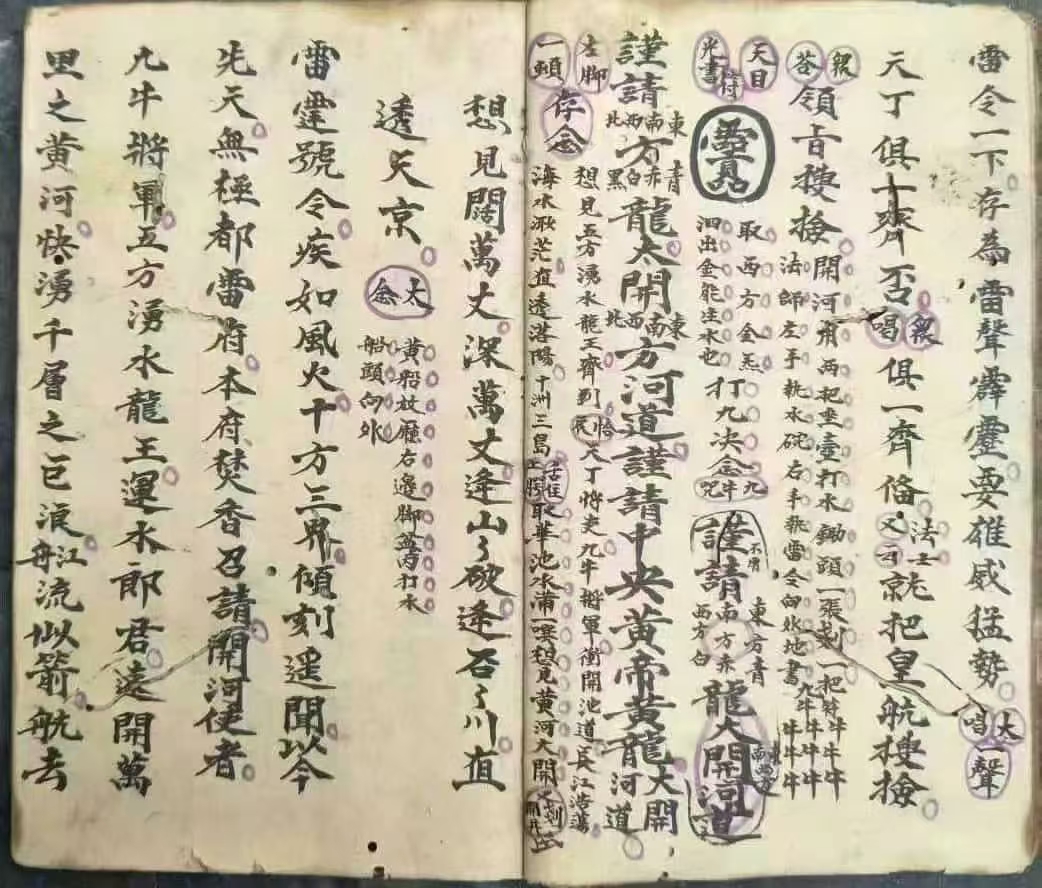 雷令一下存為雷聲霹靂要雄威猛勢
大唱一聲
天丁俱十齊否
眾唱
俱一齊俻
又云
法士
就把皇航搜撿
眾荅
領旨搜撿
開河甬兩把坐壺打水鋤頭一張刬一把
法師左手执水碗右手执雷令向外地書九牛牛牛牛牛
天目
光書符
取西方金炁
泗出金能生水也
打九决念九牛咒
謹請
東方青
南方赤
西方白
龍大開河道
謹請
東南西北
方
青赤白黑
龍太開
東南西北
方河道謹請中央黃帝黃龍大開河道
左脚一頓
存念
想見五方湧水龍王齊到
天丁将吏九牛將軍衝開池道長江浩蕩
海水漱茫直透洛陽十洲三島
取華池水蒲一噀想見黃河大開
想見闊萬丈深萬丈逢山々破逢石々川直
透天京
太念
黃船放廳右邊脚盆内打水
船頭向外
雷霆號令疾如風火十方三界傾刻遥聞以今
先天無極都雷府本府焚香召請開河使者
九牛將軍五方湧水龍王運水郎君遠開萬
里之黃河快湧千層之巨浪江舟流似箭航去